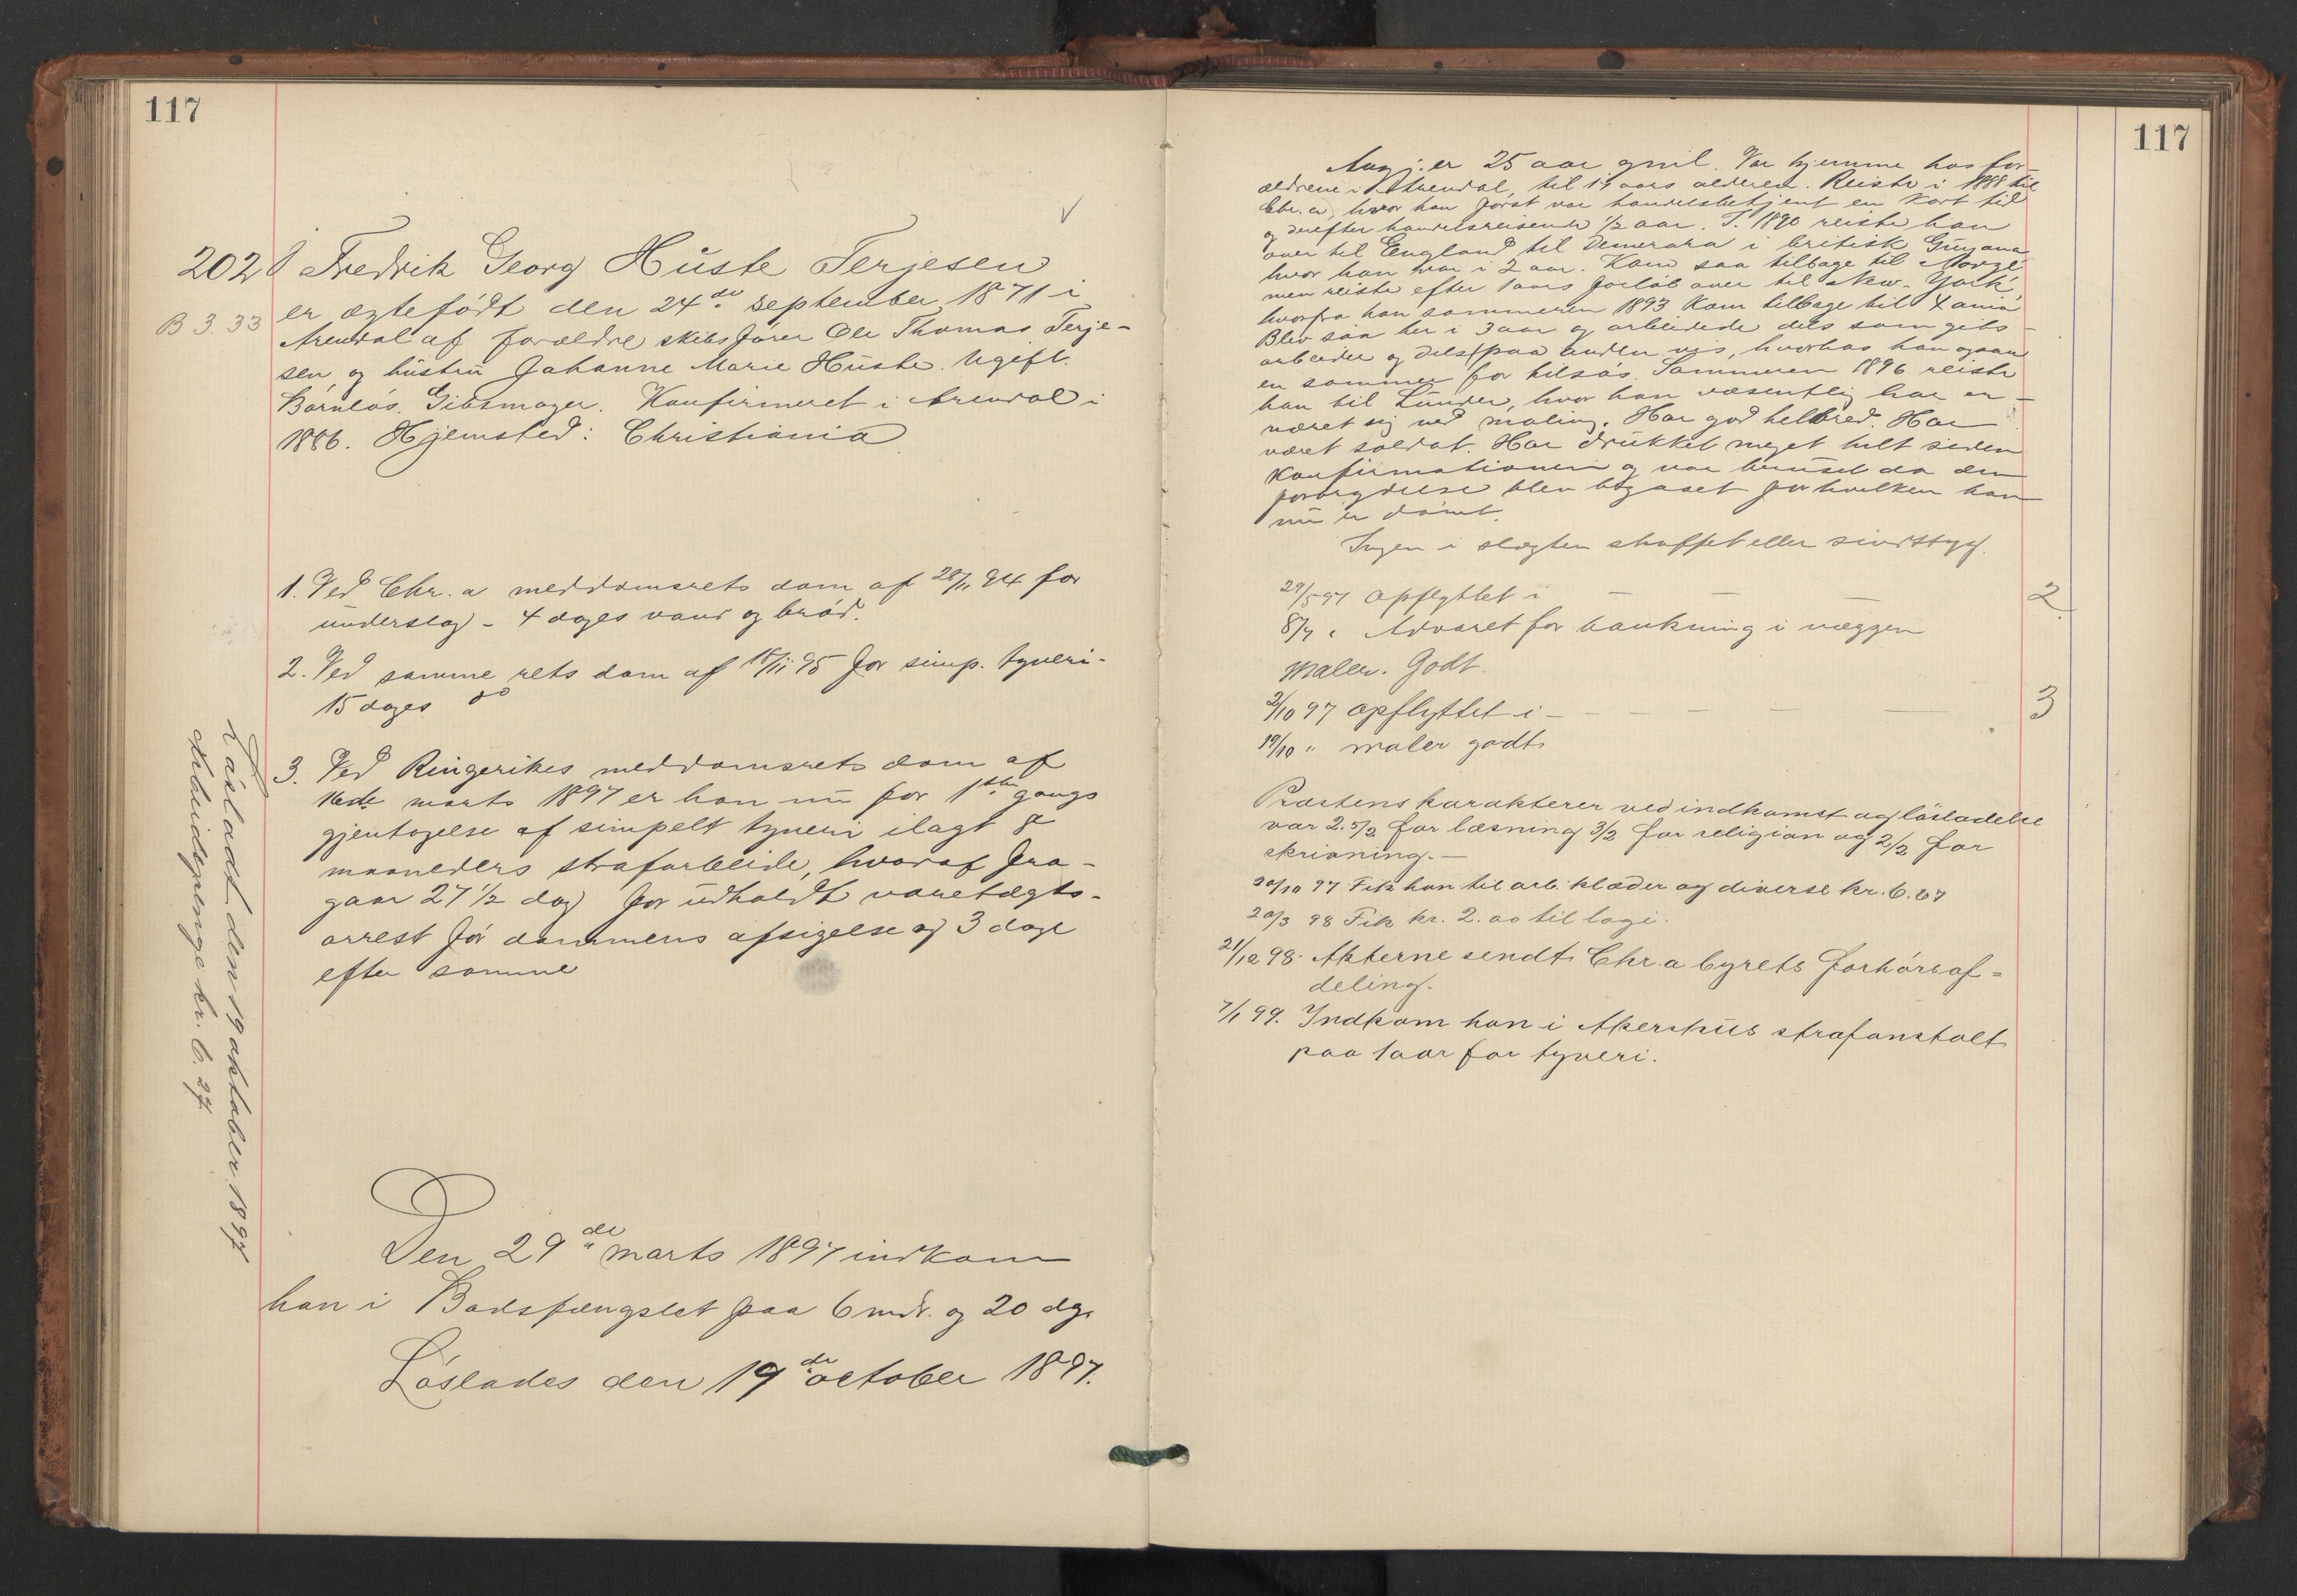 117
202
Fredrik Georg Huste Terjesen
B 3. 33
er ægtefödt den 24de september 1871 i
Arendal af forældre skibsförer Ole Thomas Terje-
sen og hustru Johanne Marie Huste. Ugift.
Barnlös. Gibsmager. Konfirmeret i Arendal i
1886. Hjemsted: Christiania
1. Ved Chr.a meddomsrets dom af 28/11 94 for
underslag - 4 dages vand og bröd.
2. Ved samme rets dom af 18/11 95 for simp. tyveri -
15 dages do
3. Ved Ringerikes meddomsrets dom af
16de marts 1897 er han nu for 1ste gangs
gjentagelse af simpelt tyveri ilagt 8
maaneders strafarbeide, hvoraf fra-
gaar 27 1/2 dag for udholdt varetægts-
arrest för dommens afsigelse og 3 dage
efter samme
Lösladt den 19 oktober 1897
Arbeidspenge kr. 6.27
Den 29de marts 1897 indkom
han i Bodsfængslet paa 6 mdr. og 20 dg.
Löslades den 19de october 1897.
117
er 25 aar gml. Var hjemme hos for-
ældrene i Arendal, til 17 aars alderen. Reiste i 1888 til
Chr.a, hvor han först var handelsbetjent en kort tid
og derefter handelsreisende 1/2 aar. I 1890 reiste han
over til England til Demerara i britisk Guyana
hvor han var i 2 aar. Kom saa tilbage til Norge
men reiste efter 1 aars forlöb over til New-York,
hvorfra han sommeren 1893 kom tilbage til Xania
Blev saa her i 3 aar og arbeidede dels som gibs-
arbeider og dels paa anden vis, hvorhos han ogsaa
en sommer for tilsös. Sommeren 1896 reiste
han til Lunder, hvor han væsentlig har er-
næret sig ved maling. Har god helbred. Har
været soldat. Har drukket meget helt siden
konfirmationen og var beruset da den
forbrydelse blev begaaet for hvilken han
nu er dömt.
Ingen i slægten straffet eller sindssyg.
29/5 97 Opflyttet i — — — 2
8/7 " Advaret for bankning i væggen
Maler. Godt.
2/10 97 opflyttet i - — — — 3
19/10 " maler godt.
Præstens karakterer ved indkomst og lösladelse
var 2.5/2 for læsning 3/2 for religion og 2/2 for
skrivning. —
20/10 97 Fik han til arb. klæder og diverse kr. 6.27
20/3 98 Fik kr. 2.00 til logi.
21/12 98. Akterne sendt Chr.a byrets forhörsaf=
deling.
7/1 99. Indkom han i Akershus strafanstalt
paa 1 aar for tyveri.